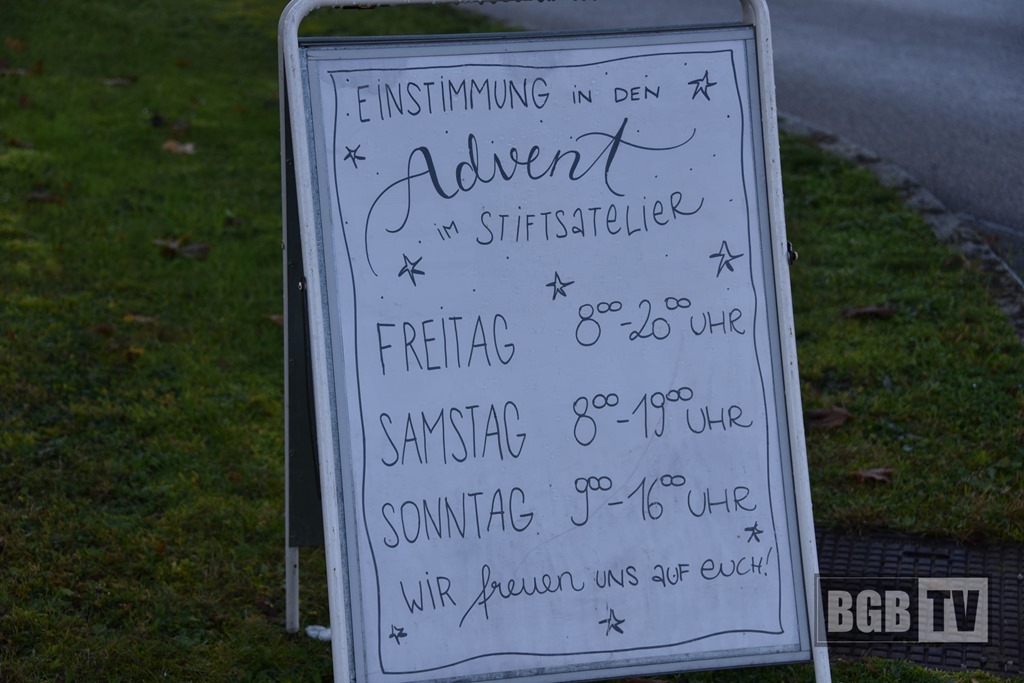 EINSTIMMUNG IN DEN
Advent
IM STIFTSATELIER
FREITAG 8⁰⁰-20⁰⁰ UHR
SAMSTAG 8⁰⁰-19⁰⁰ UHR
SONNTAG 9⁰⁰-16⁰⁰ UHR
WIR freuen UNS AUF EUCH!
BGB TV